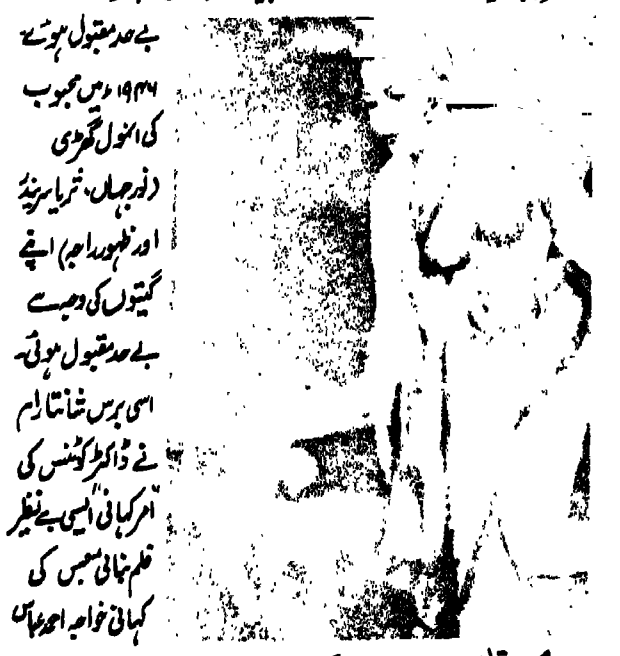 بے حد مقبول ہوئے۔
۱۹۴۶ء میں محبوب
کی انمول گھڑی
(نورجہاں، ثریا سریندر
اور ظہور راجہ) اپنے
گیتوں کی وجہ سے
بے حد مقبول ہوئی۔
اسی برس شانتارام
نے ڈاکٹر کوٹنس کی
"امر کہانی" ایسی بے نظیر
فلم بنائی جس کی
کہانی خواجہ احمد عباس